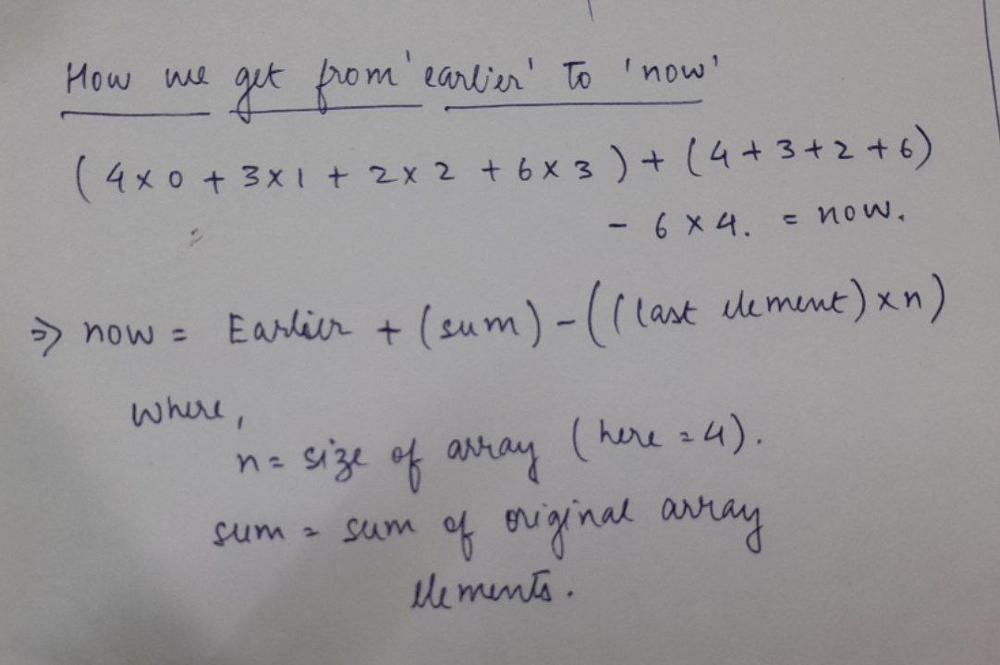 How we get from 'earlier' to 'now'
(4×0 + 3×1 + 2×2 + 6×3) + (4+3+2+6)
- 6×4. = now.
⇒ now = Earlier + (sum) - ((last element)×n)
where,
n = size of array (here = 4).
sum = sum of original array
elements.